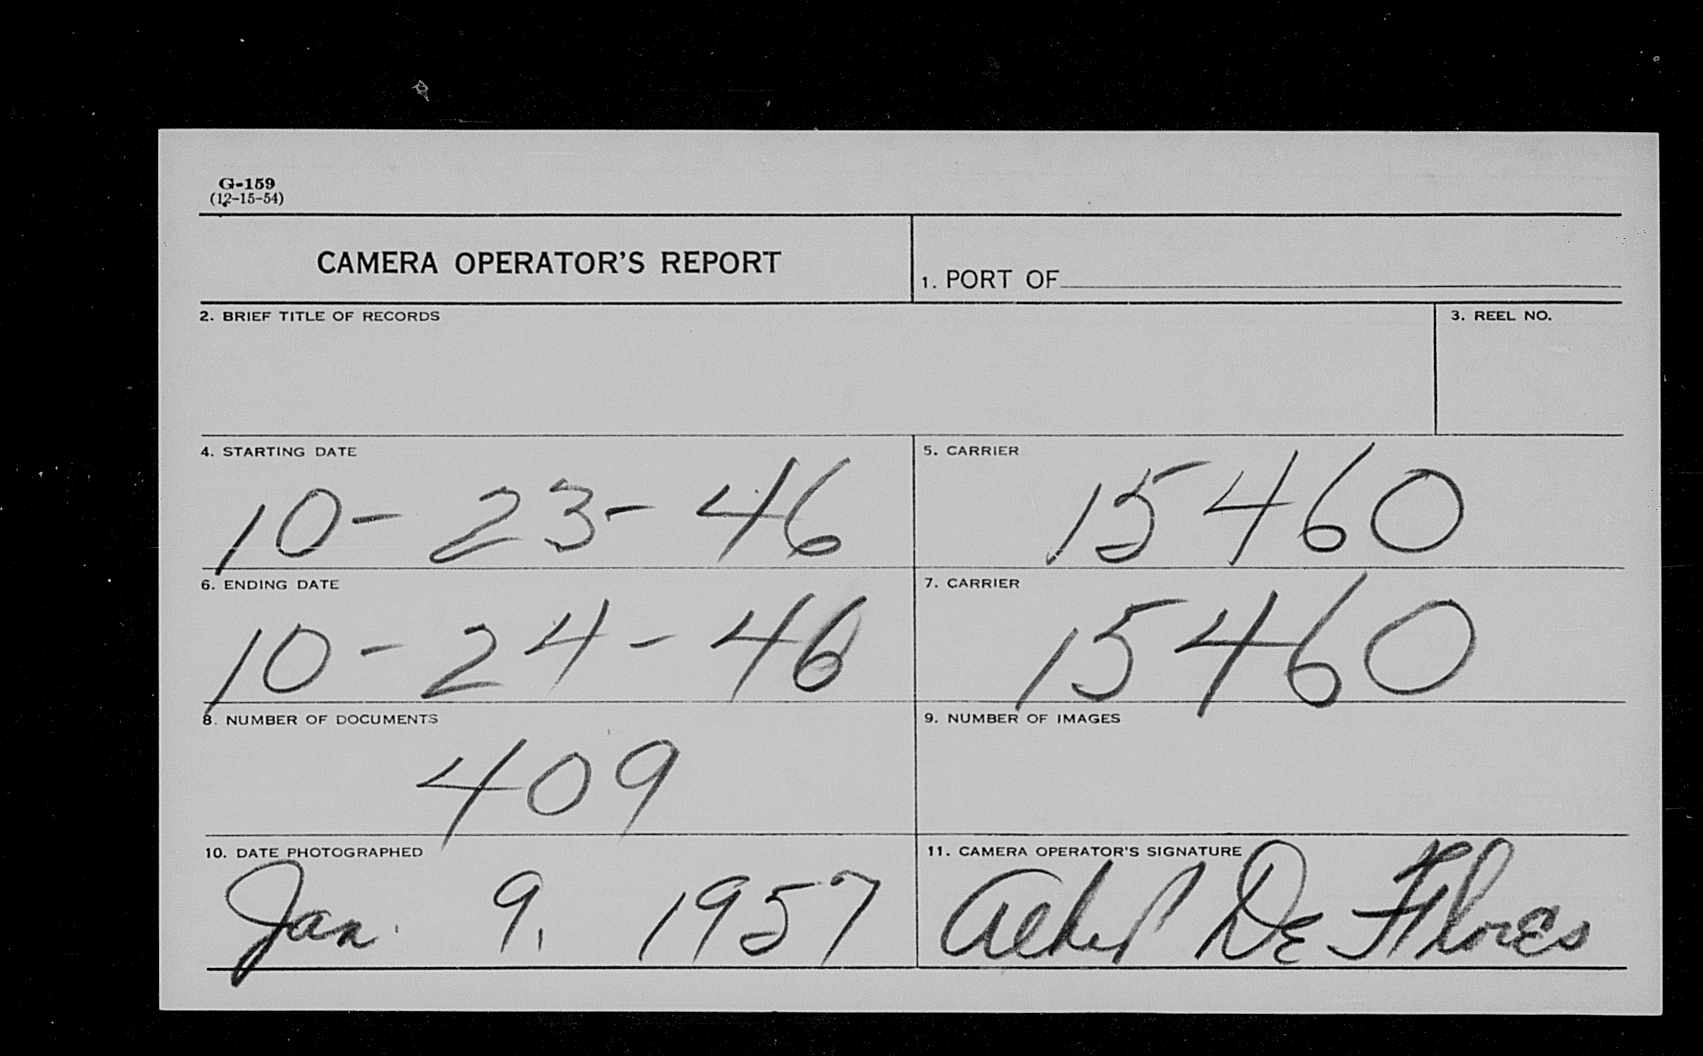 G-159
(12-15-54)
CAMERA OPERATOR'S REPORT
1. PORT OF
2. BRIEF TITLE OF RECORDS
3. REEL NO.
4. STARTING DATE
10-23-46
5. CARRIER
15460
6. ENDING DATE
10-24-46
7. CARRIER
15460
8. NUMBER OF DOCUMENTS
409
9. NUMBER OF IMAGES
10. DATE PHOTOGRAPHED
Jan. 9, 1957
11. CAMERA OPERATOR'S SIGNATURE
De Flores